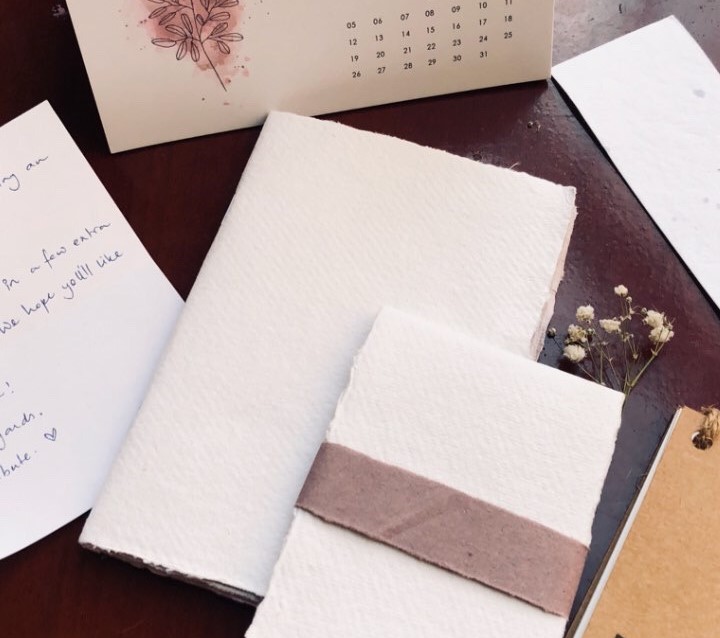 05 06 07 08 09 10 11
12 13 14 15 16 17 18
19 20 21 22 23 24 25
26 27 28 29 30 31
ng an
in a few extra
we hope you'll like
!
gards,
bute. ♡